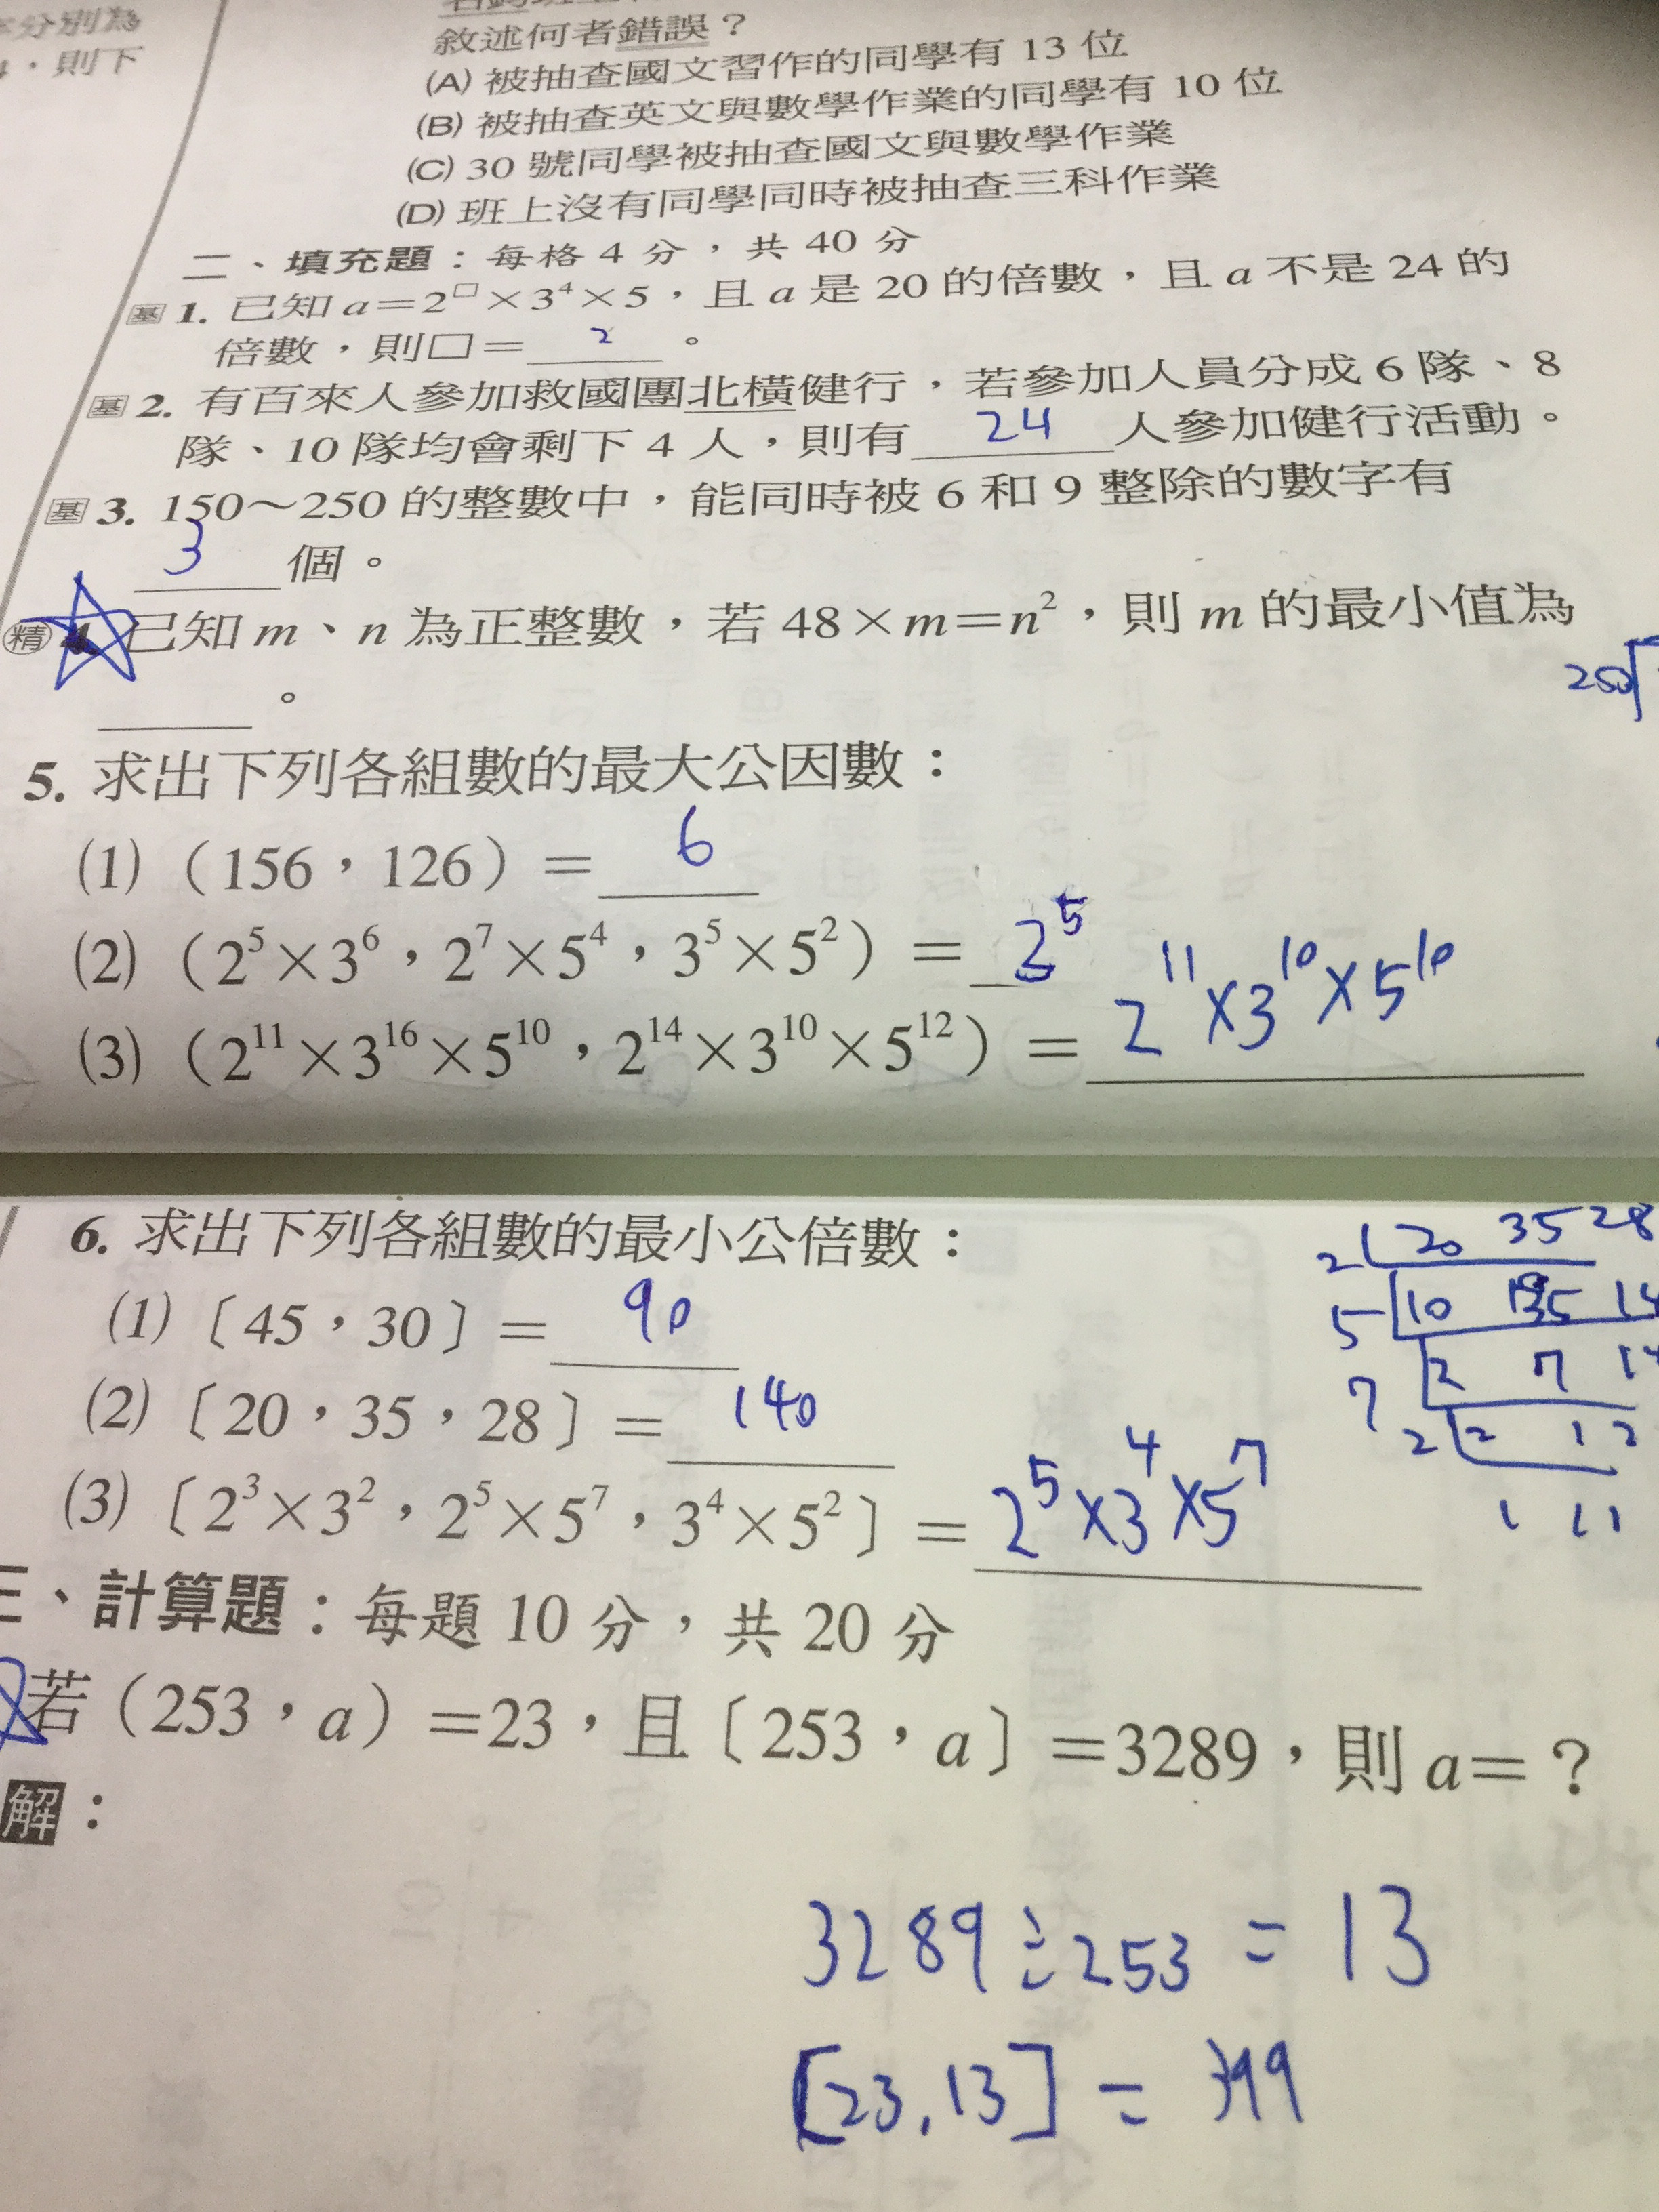 字分別為
，則下
敘述何者錯誤？
(A) 被抽查國文習作的同學有 13 位
(B) 被抽查英文與數學作業的同學有 10 位
(C) 30 號同學被抽查國文與數學作業
(D) 班上沒有同學同時被抽查三科作業
二、填充題：每格 4 分，共 40 分
基 1. 已知 a＝2^□×3⁴×5，且 a 是 20 的倍數，且 a 不是 24 的
倍數，則□＝ 2 。
基 2. 有百來人參加救國團北橫健行，若參加人員分成 6 隊、8
隊、10 隊均會剩下 4 人，則有 24 人參加健行活動。
基 3. 150～250 的整數中，能同時被 6 和 9 整除的數字有
3 個。
精 已知 m、n 為正整數，若 48×m＝n²，則 m 的最小值為
。
5. 求出下列各組數的最大公因數：
(1)（156，126）＝ 6
(2)（2⁵×3⁶，2⁷×5⁴，3⁵×5²）＝ 2⁵
(3)（2¹¹×3¹⁶×5¹⁰，2¹⁴×3¹⁰×5¹²）＝ 2¹¹×3¹⁰×5¹⁰
6. 求出下列各組數的最小公倍數：
(1)〔45，30〕＝ 90
(2)〔20，35，28〕＝ 140
(3)〔2³×3²，2⁵×5⁷，3⁴×5²〕＝ 2⁵×3⁴×5⁷
2 20 35 28
5 10 35 14
7 2 7 14
2 2 1 2
1 1 1
三、計算題：每題 10 分，共 20 分
若（253，a）＝23，且〔253，a〕＝3289，則 a＝？
解：
3289÷253 = 13
[23,13] = 299